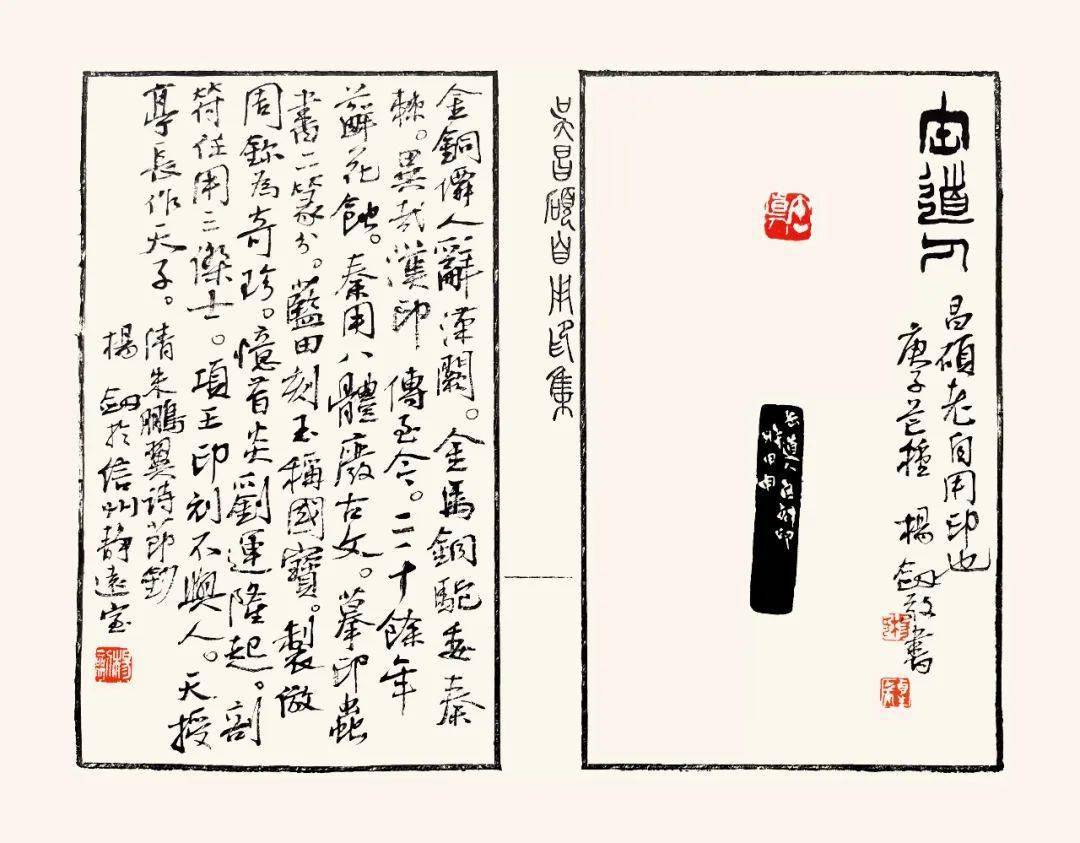 缶道人
昌碩老自用印也
庚子芒種 楊劍敬書
吳昌碩自用印集
金銅僊人辭漢闕。金馬銅駝委秦
棘。異哉漢印傳至今。二千餘年
蘚花蝕。秦用八體廢古文。摹印蟲
書二篆分。藍田刻玉稱國寶。製倣
周鉨為奇珍。憶昔炎劉運隆起。剖
符任用三傑士。項王印刻不與人。天授
亭長作天子。
清朱鵬翼詩節鈔
楊劍於信州靜遠室